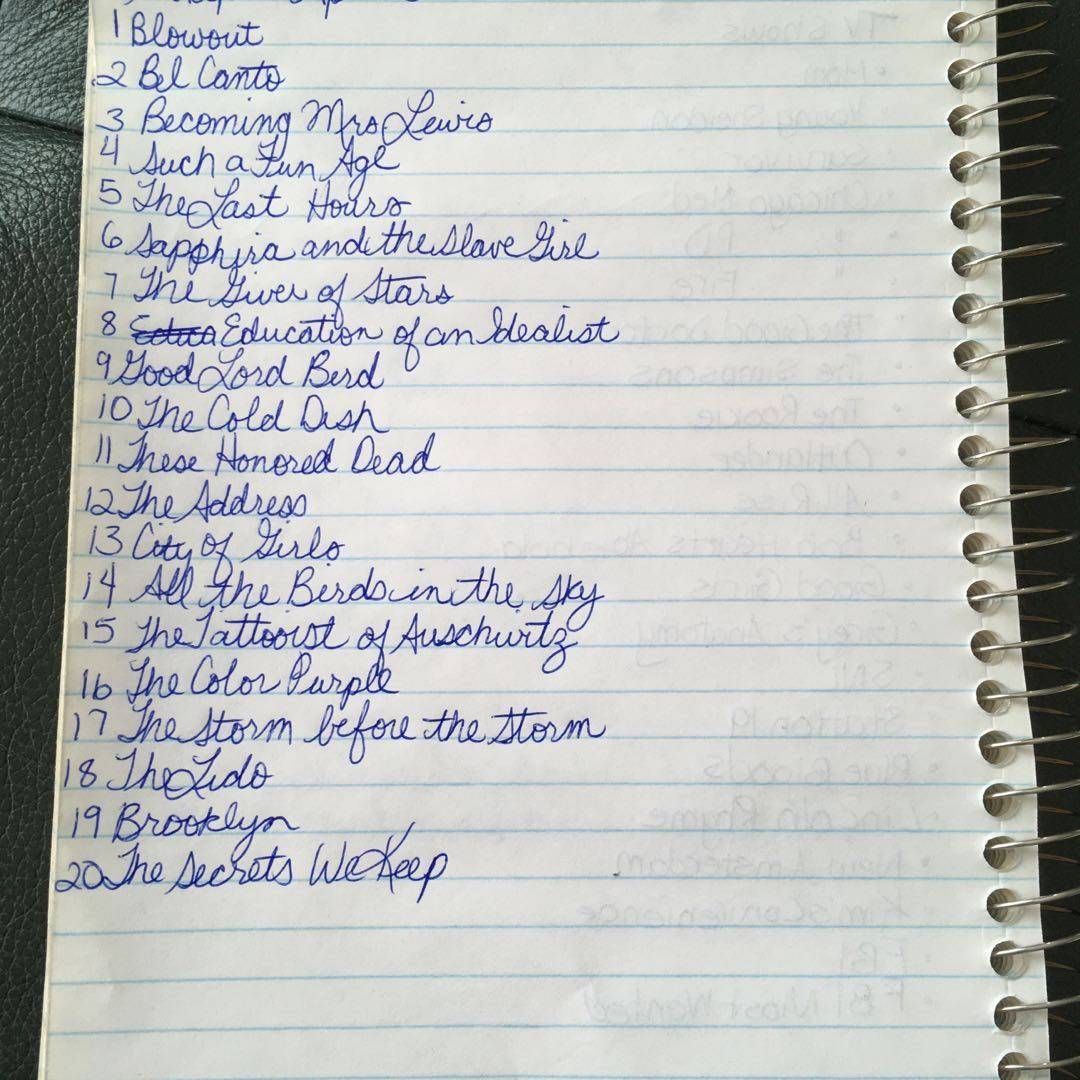 1 Blowout
2 Bel Canto
3 Becoming Mrs Lewis
4 Such a Fun Age
5 The Last Hours
6 Sapphira and the Slave Girl
7 The Giver of Stars
8 Education of an Idealist
9 Good Lord Bird
10 The Cold Dish
11 These Honored Dead
12 The Address
13 City of Girls
14 All the Birds in the Sky
15 The Tattooist of Auschwitz
16 The Color Purple
17 The Storm before the Storm
18 The Lido
19 Brooklyn
20 The Secrets We Keep